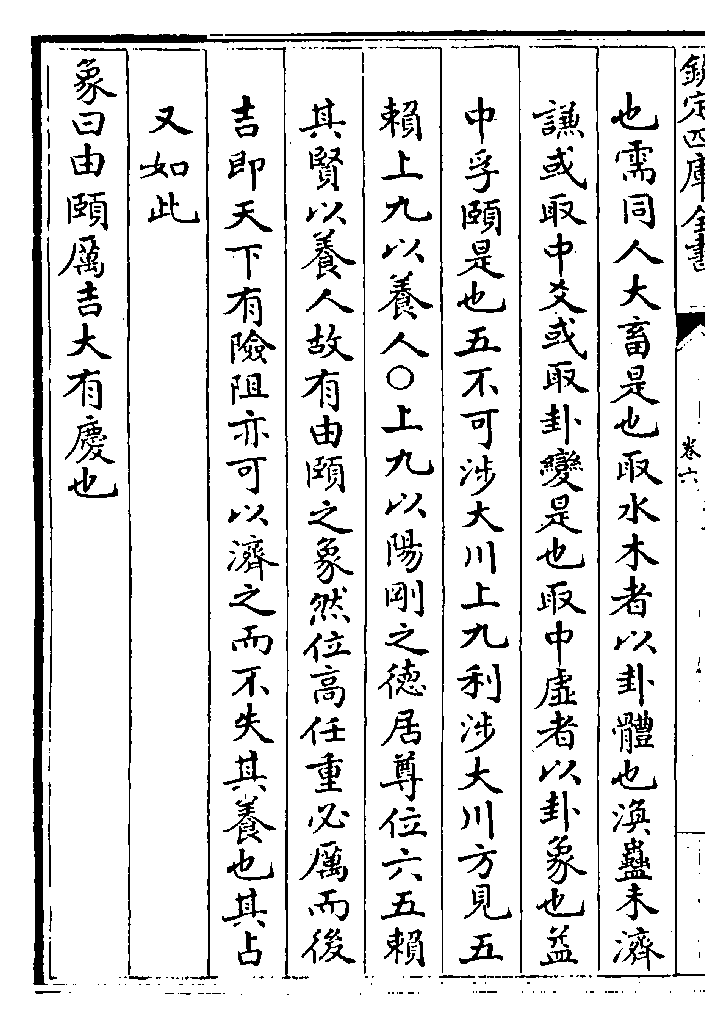 欽定四庫全書
卷六
也需同人大畜是也取水木者以卦體也渙蠱未濟
謙或取中爻或取卦變是也取中虛者以卦象也益
中孚頤是也五不可涉大川上九利涉大川方見五
賴上九以養人○上九以陽剛之德居尊位六五賴
其賢以養人故有由頤之象然位高任重必厲而後
吉即天下有險阻亦可以濟之而不失其養也其占
又如此
象曰由頤厲吉大有慶也